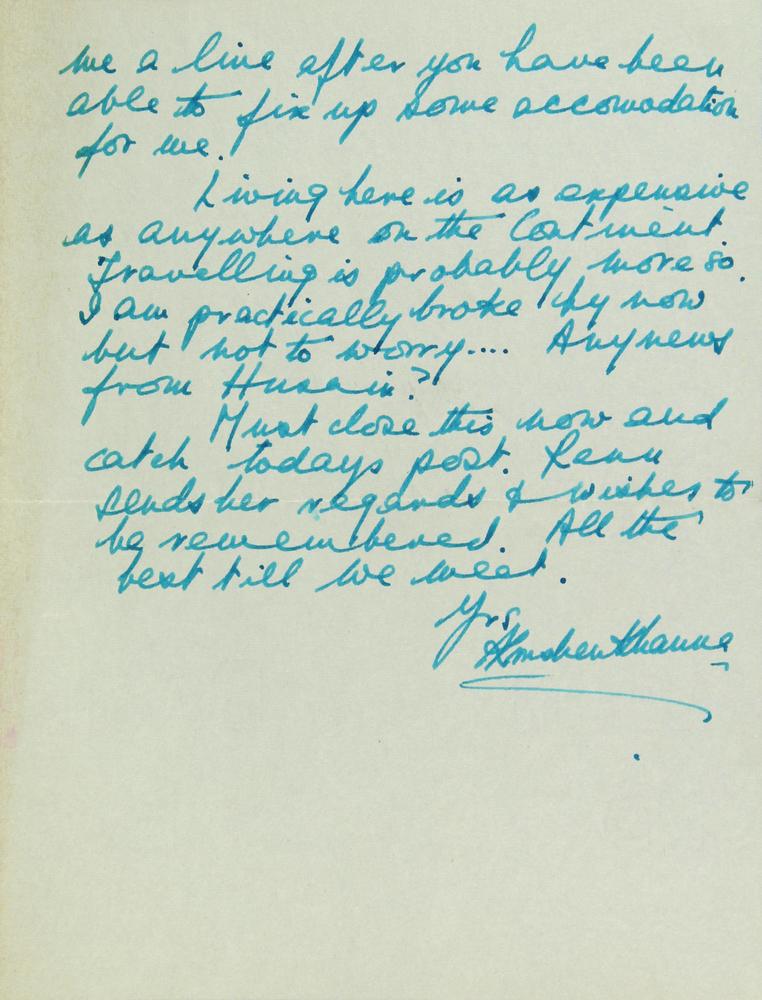 me a line after you have been
able to fix up some accomodation
for me.
Living here is as expensive
as anywhere on the Contment.
Travelling is probably more so.
I am practically broke by now
but not to worry.... Any news
from Husain?
Must close this now and
catch todays post. Renu
sends her regards & wishes to
be remembered. All the
best till we meet.
Yrs
Krishen Khanna